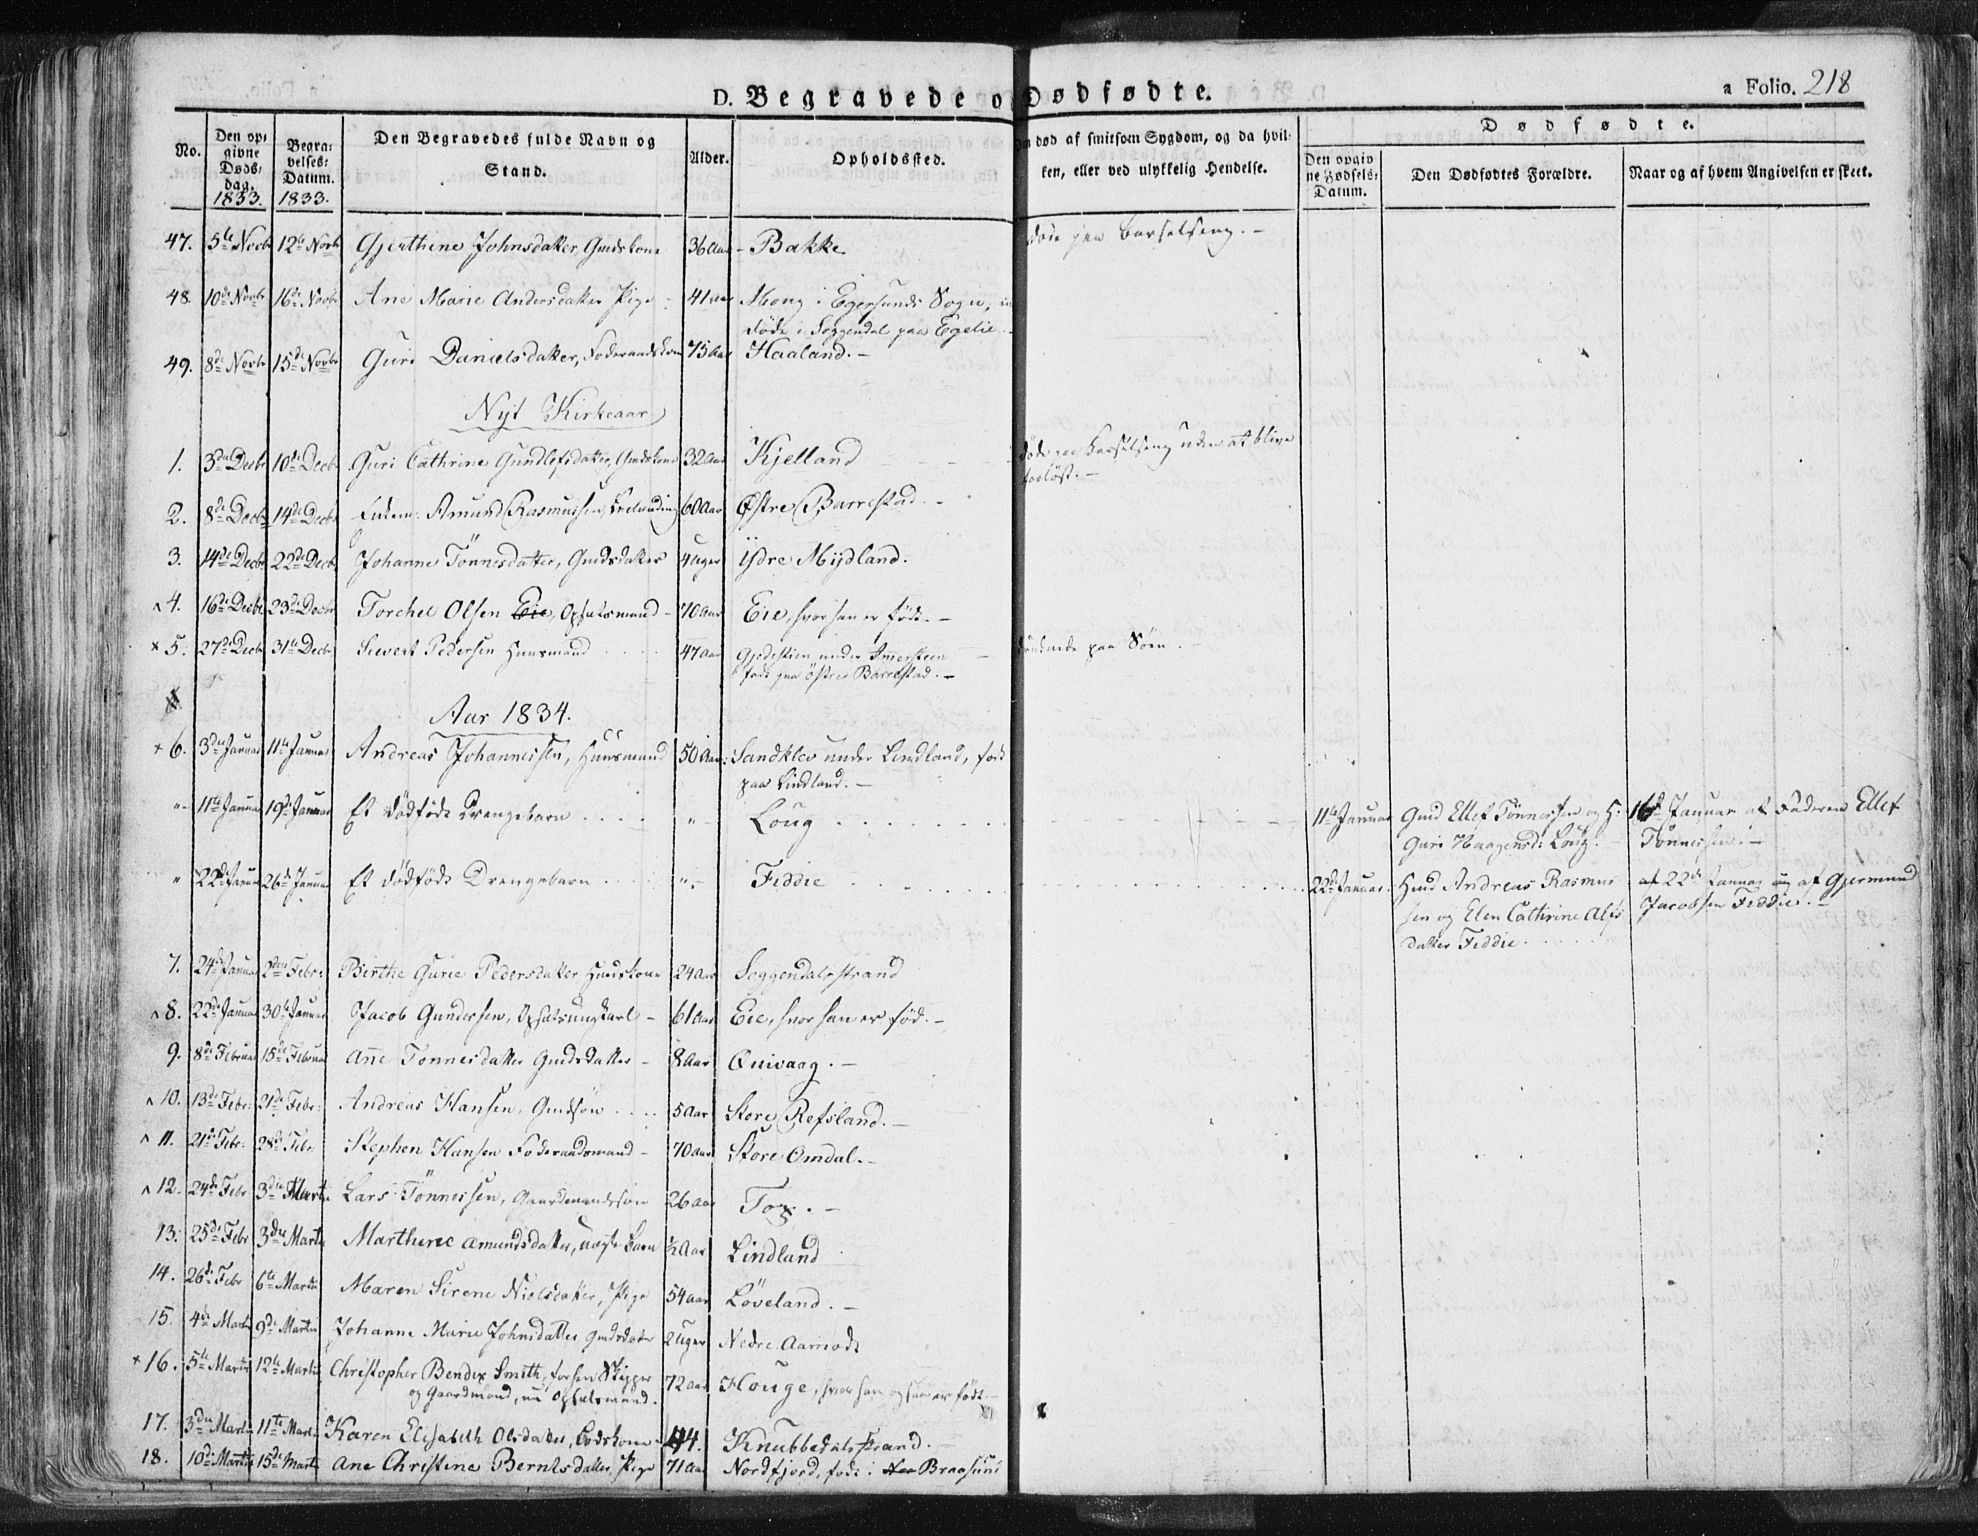 D. Begravede o Dødfødte.
a Folio. 218
No.
Den op:
givne
Døds:
dag.
1833.
Begra:
velses:
Datum.
1833.
Den Begravedes fulde Navn og
Stand.
Alder.
Opholdssted.
død af smitsom Sygdom, og da hvil:
ken, eller ved ulykkelig Hendelse.
Dødfødte.
Den opgiv
ne Fødsels:
Datum.
Den Dødfødtes Forældre.
Naar og af hvem Angivelsen er skeet.
47. 5te Novbr 12te Novbr Gjerthine Johnsdatter, Gmdskone 36 Aar - Bakke døde paa barselseng. -
48. 10de Novbr 16de Novbr Ane Marie Andersdatter Pige 41 Aar Mong i Egersunds Sogn,
døde i Soggendal paa Egelie.
49. 8de Novbr 15de Novbr Guri Danielsdatter, Foderaadskone 75 Aar Haaland. -
Nyt Kirkeaar
1. 3die Decbr 10de Decbr Guri Cathrine Gundlefsdatter, Gmdskone 32 Aar Kjelland døde paa Barselseng uden at blive
forløst. -
2. 8de Decbr 14de Decbr Amund Rasmussen, 60 Aar Østre Barrestad. -
3. 14de Decbr 22de Decbr Johanne Tönnesdatter, Gmdsdatter 4 Uger Ydre Mydland.
4. 16de Decbr 23de Decbr Torchel Olsen Eie, Opsætsmand - 70 Aar Eie, hvor han er født. -
× 5. 27de Decbr 31te Decbr Sievert Pedersen Huusmand 47 Aar Gjedestien under Immersteen
født paa östre Barrestad. - druknede paa Söen. -
Aar 1834.
× 6. 3die Januar 11te Januar Andreas Johannessen, Huusmand 50 Aar: Sandklev under Lindland, født
paa Lindland. -
" 11te Januar 19de Januar Et dödfödt Drengebarn " Loug 11te Januar Gmd Ellef Tönnessen og H: 16de Januar af Faderen Ellef
Guri Haagensd: Loug. - Tönnessen. -
" 22de Januar 26de Januar Et dödfödt Drengebarn " - Feddie 22de Januar. Hmd Andreas Rasmus af 22de Januar af Gjermund
sen og Elen Cathrine Alfs Jacobsen Feddie. -
datter Feddie
7. 24de Januar 2den Febr: Berthe Gurie Pedersdatter Huuskone 24 Aar Soggendalsstrand
8. 22de Januar 30te Januar Jacob Gundersen, Opsætsungkarl - 61 Aar Eie, hvor han er fød. -
9. 8de Februar 15de Februar Anne Tonnesdatter Gmdsdatter - 8 Aar Quivaag. -
10. 13de Febr: 21de Febr: Andreas Hansen, Gmdsön 5 Aar Store Refsland. -
11. 21de Febr. 28de Febr Stephen Hansen Foderaadsmand - 70 Aar Store Omdal. -
12. 24de Febr 3die Marts Lars Tönnessen, Gaardmandssön 26 Aar Tog. -
13. 25de Febr 3die Marts Marthine Amundsdatter, uægte Barn ½ Aar Lindland
14. 26de Febr 6te Marts Maren Sirene Nielsdatter, Pige 54 Aar Löveland. -
15. 4de Marts 9de Marts Johanne Marie Johnsdatter Gmdsdatter 2 Uger Nedre Aamodt
× 16. 5te Marts 12te Marts Christopher Bendix Smith, forhen Skipper
og Gaardmand, nu Opsætsmand. 72 Aar Houge, hvor han ogsaa er født. -
17. 3die Marts 11te Marts Karen Elisabeth Olsdatter, 44. Knubbedalsstrand. -
18. 10de Marts 15de Marts Ane Christine Berntsdatter, Pige 71 Aar Nordfjord, født i Braasund